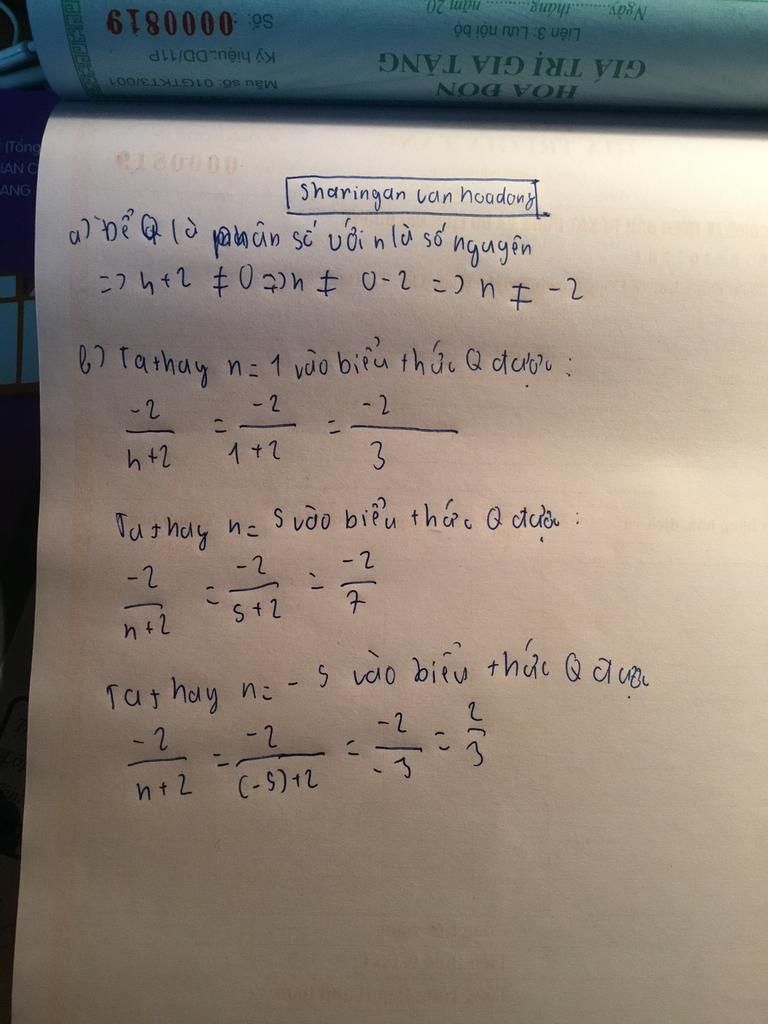 Số: 0000819
Ký hiệu: DD/11P
Mẫu số: 01GTKT3/001
Ngày......... tháng......... năm 20
Liên 3: Lưu nội bộ
GIÁ TRỊ GIA TĂNG
HOA ĐƠN
(Tổng
0000819
Sharingan van hoadong
a) Để Q là phân số với n là số nguyên
=> n+2 ≠ 0 => n ≠ 0-2 => n ≠ -2
b) Ta thay n = 1 vào biểu thức Q được :
-2/n+2 = -2/1+2 = -2/3
Ta thay n = 5 vào biểu thức Q được :
-2/n+2 = -2/5+2 = -2/7
Ta thay n = -5 vào biểu thức Q được
-2/n+2 = -2/(-5)+2 = -2/-3 = 2/3